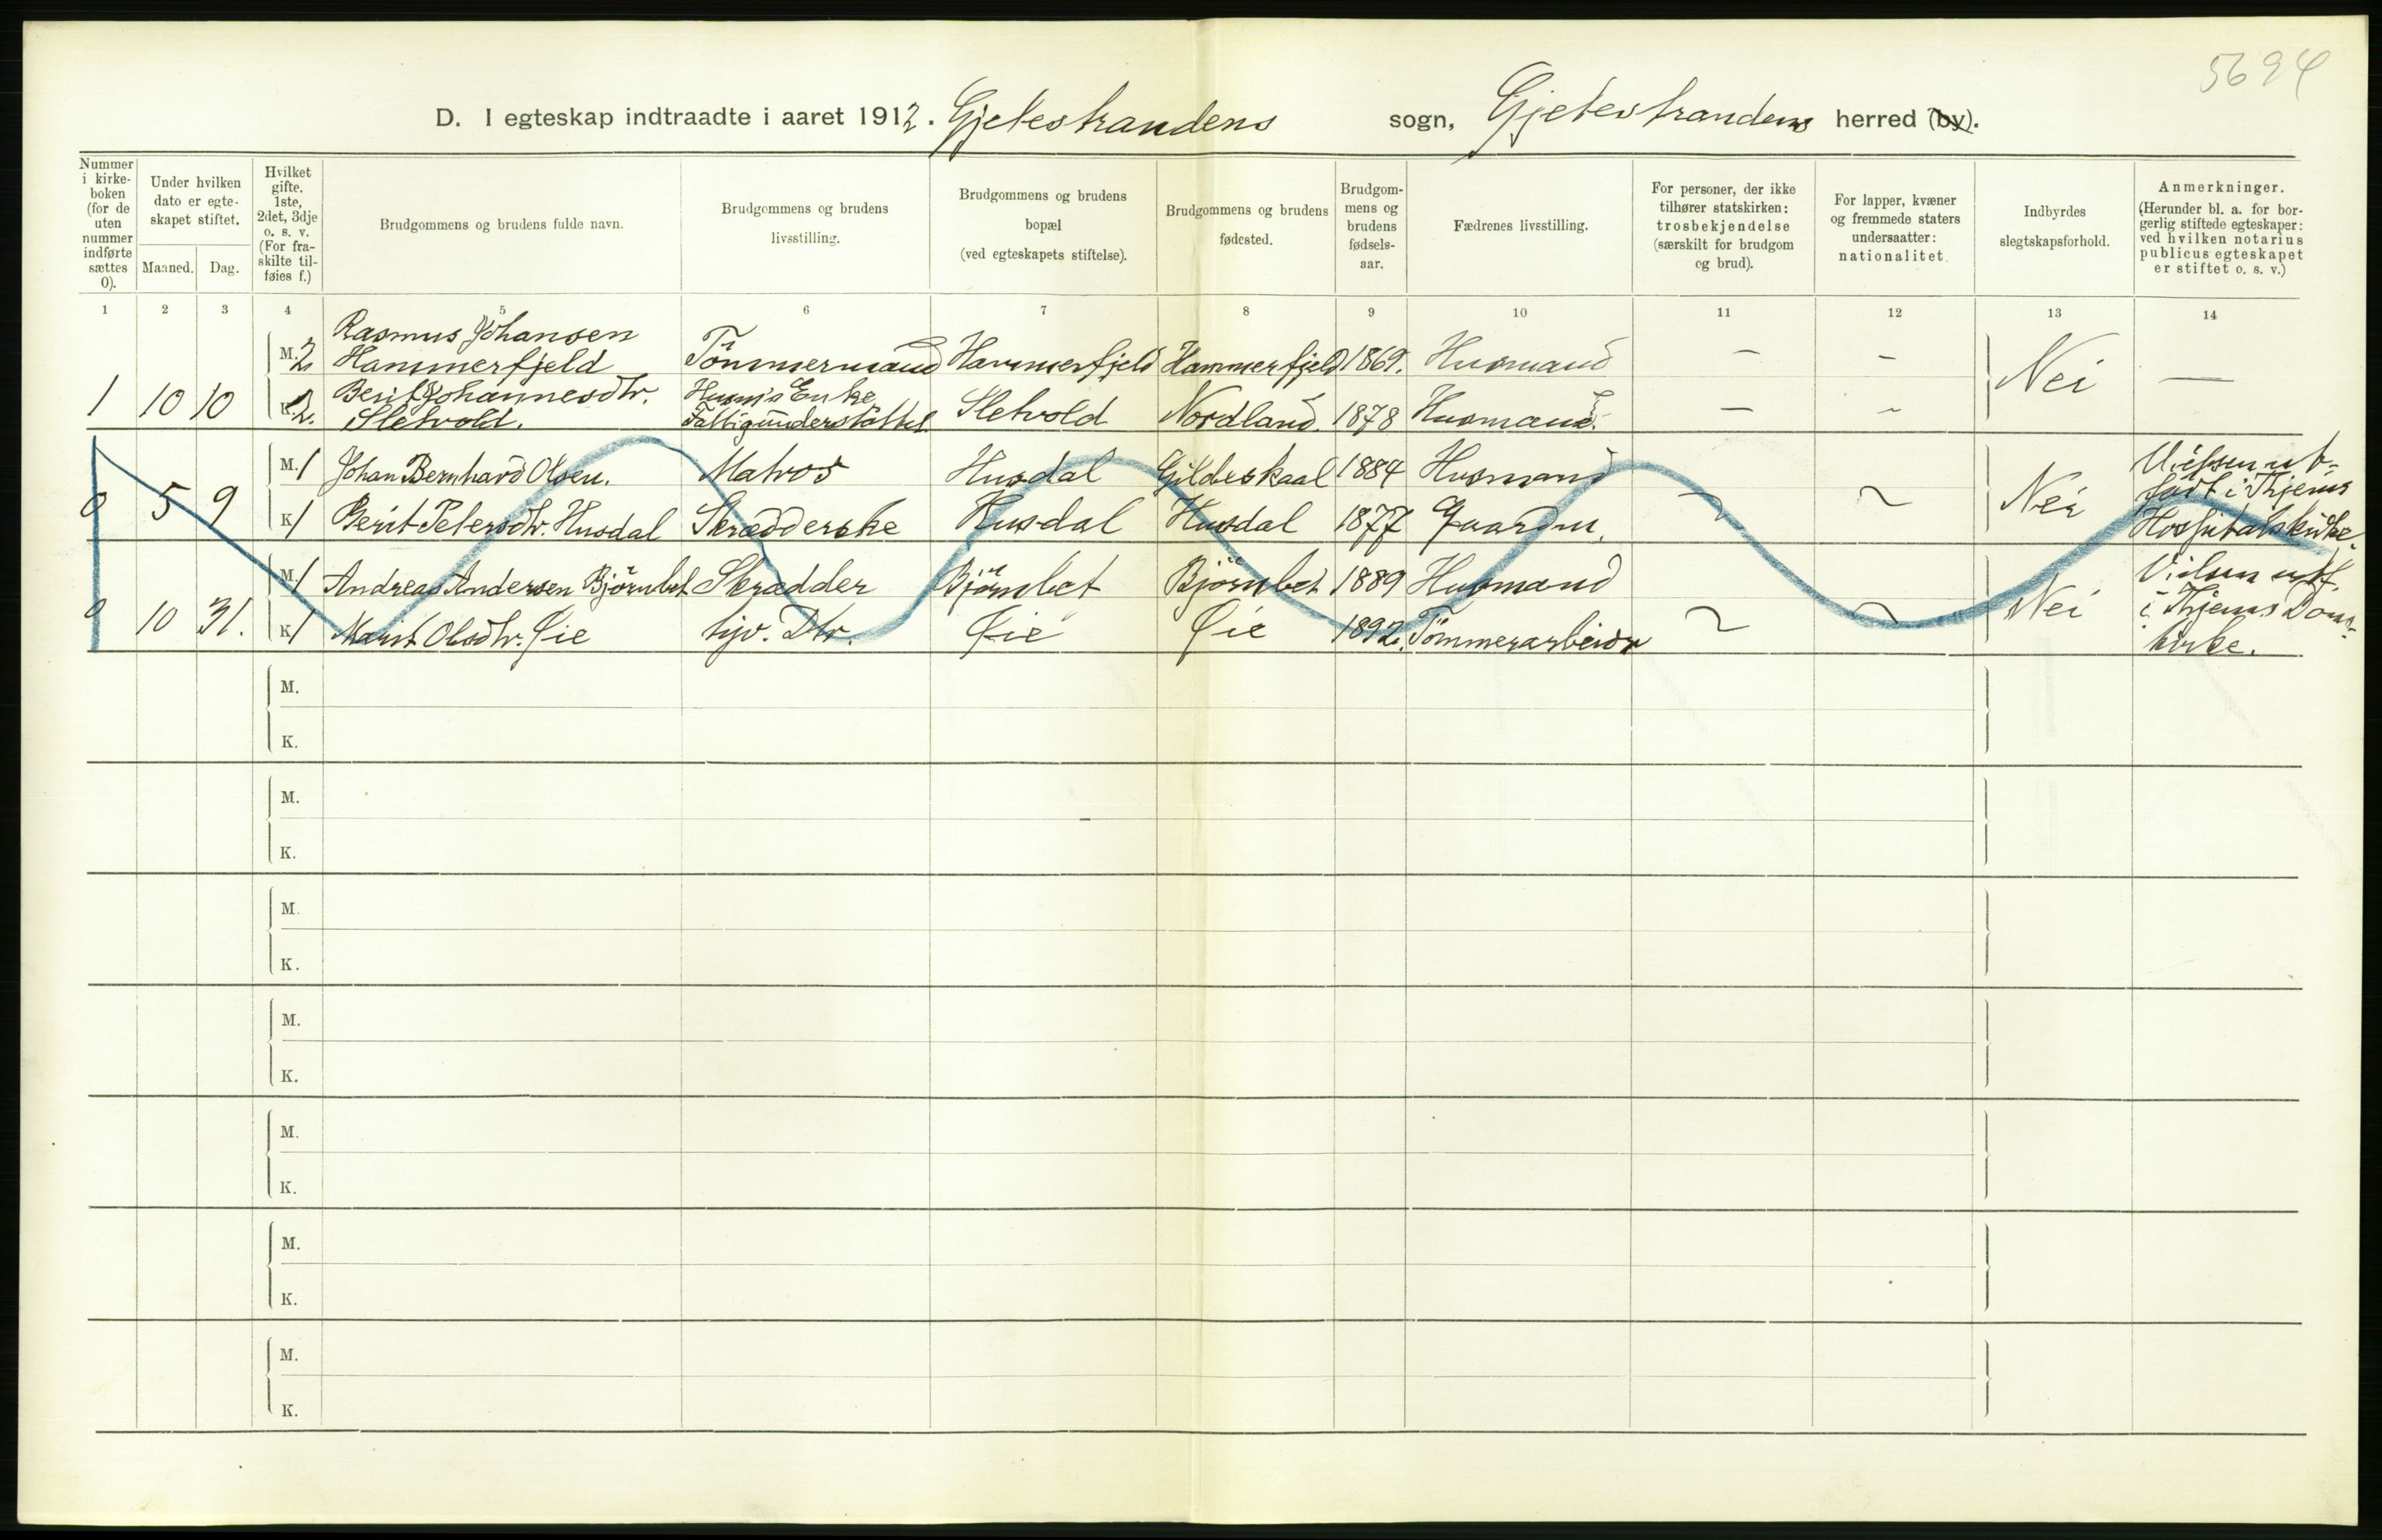 5694
D. I egteskap indtraadte i aaret 1912. Gjetestrandens sogn, Gjetestrandens herred (by).
Nummer i kirkeboken (for de uten nummer indførte sættes 0).
Under hvilken dato er egteskapet stiftet.
Maaned. Dag.
Hvilket gifte. 1ste, 2det, 3dje o. s. v. (For fraskilte tilføies f.)
Brudgommens og brudens fulde navn.
Brudgommens og brudens livsstilling.
Brudgommens og brudens bopæl (ved egteskapets stiftelse).
Brudgommens og brudens fødested.
Brudgommens og brudens fødselsaar.
Fædrenes livsstilling.
For personer, der ikke tilhører statskirken: trosbekjendelse (særskilt for brudgom og brud).
For lapper, kvæner og fremmede staters undersaatter: nationalitet
Indbyrdes slegtskapsforhold.
Anmerkninger. (Herunder bl. a. for borgerlig stiftede egteskaper: ved hvilken notarius publicus egteskapet er stiftet o. s. v.)
1 2 3 4 5 6 7 8 9 10 11 12 13 14
Rasmus Johansen
M. 2 Hammerfjeld Tömmermand Hammerfjeld Hammerfjeld 1869. Husmand — — Nei —
1 10 10 K. 2. Berit Johannesdtr. Husm's Enke
Sletvold. Fattigunderstöttet Sletvold Nordland. 1878 Husmand. — —
M. 1 Johan Bernhard Olsen. Matros Husdal Gildeskaal 1884 Husmand
0 5 9 K 1 Berit Petersdtr. Husdal Skrædderske Husdal Husdal 1877 Gaardm. ~ ~ Nei
Vielsen ut-
ført i Thjems
Hospitalskirke.
M 1 Andreas Andersen Björnbet Skrædder Björnbet Björnbet 1889 Husmand
0 10 31. K 1 Marit Olsdtr. Øie hjv. Dtr. Øie Øie 1892. Tömmerarbeidr ~ ~ Nei
Vielsen utf.
i Thjems Dom-
kirke.
M.
K.
M.
K.
M.
K.
M.
K.
M.
K.
M.
K.
M.
K.